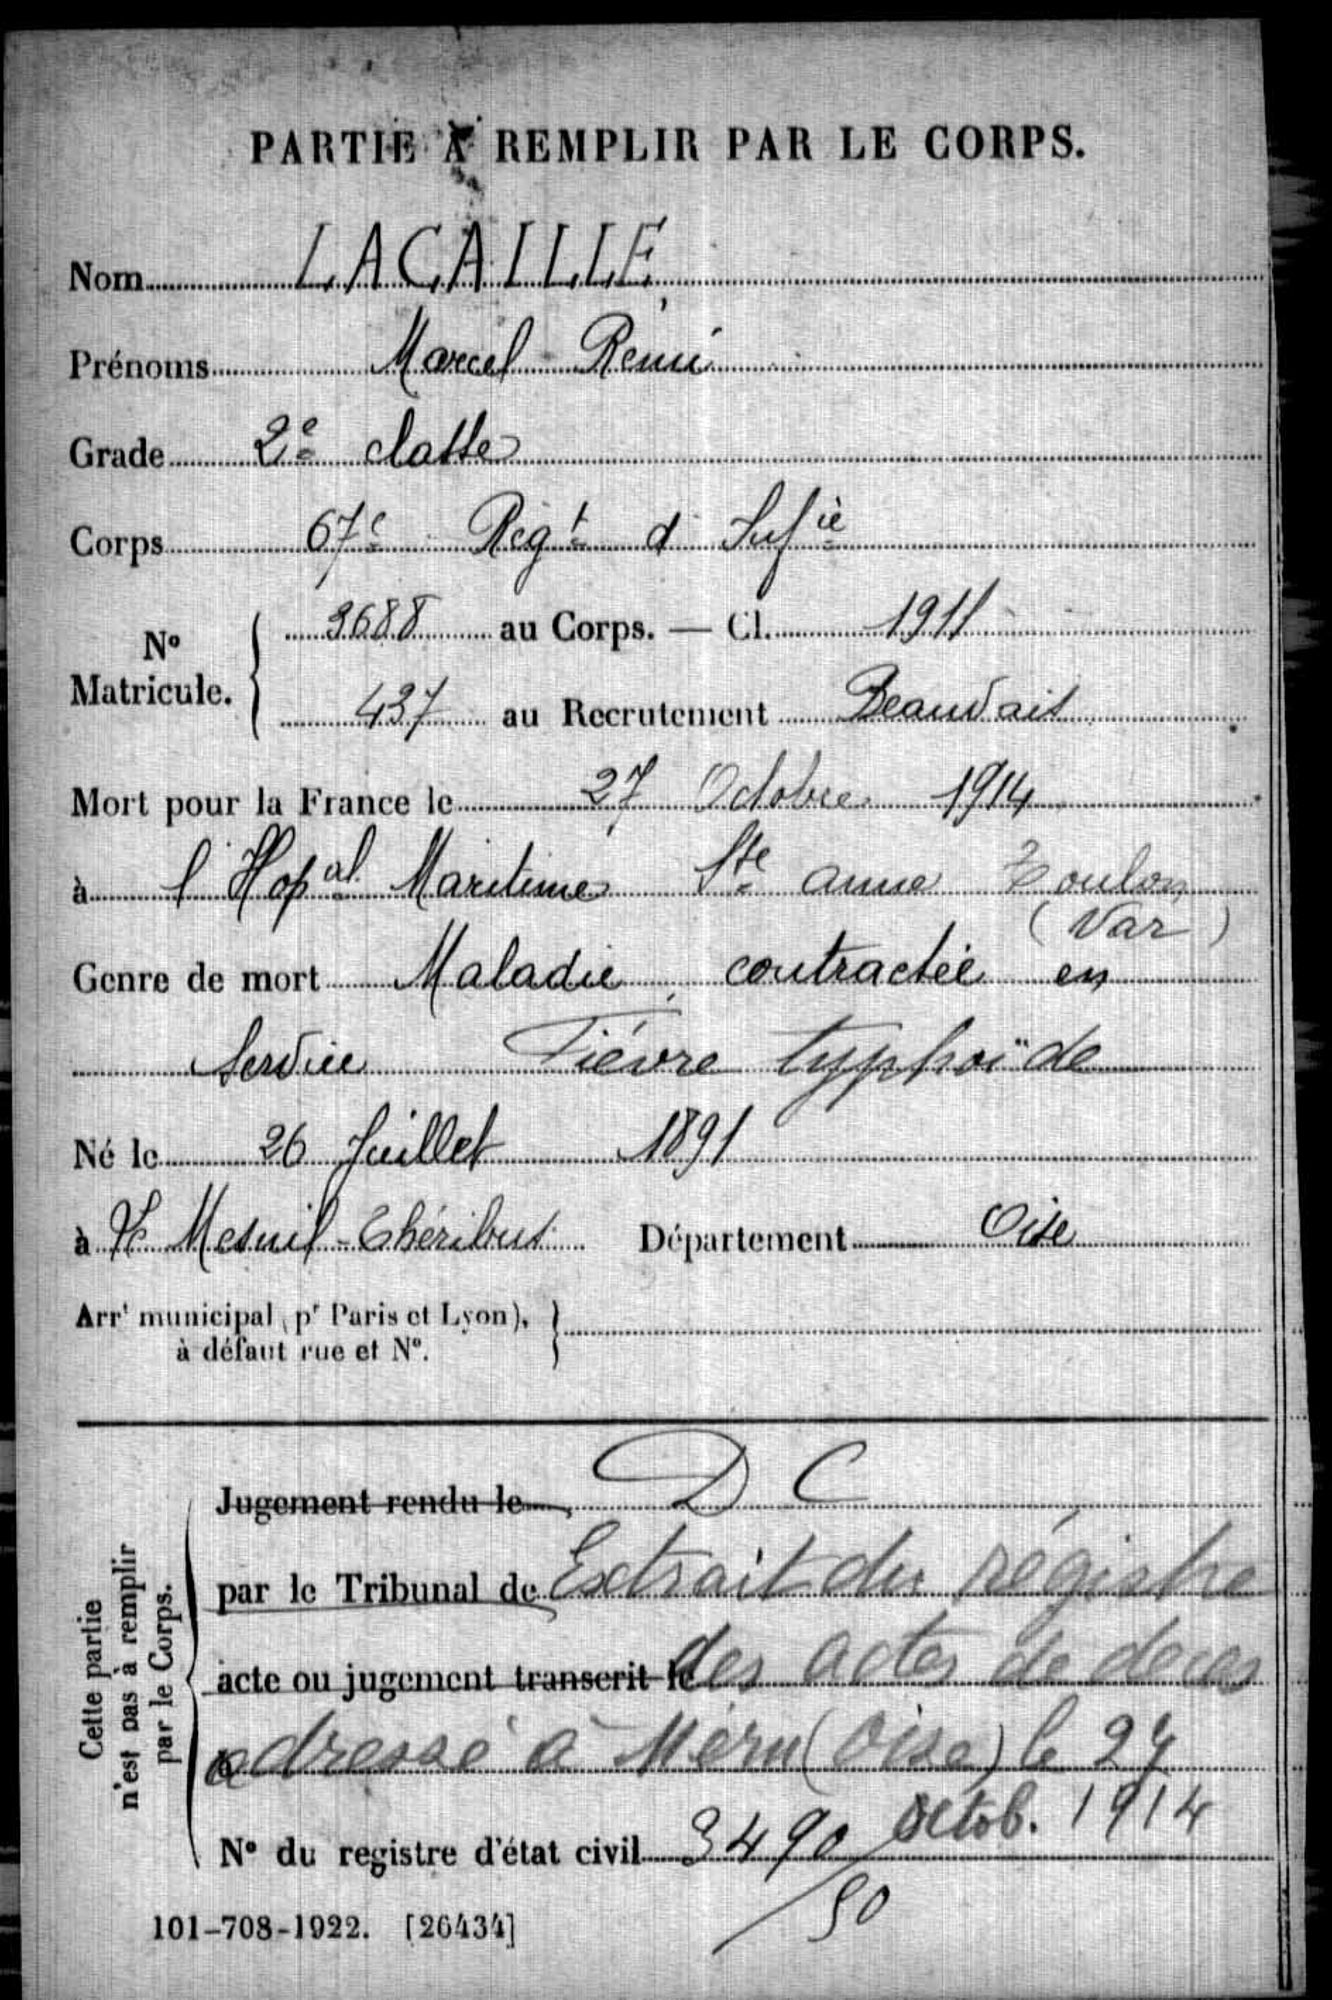 PARTIE À REMPLIR PAR LE CORPS.
Nom LACAILLE
Prénoms Marcel Rémi
Grade 2e classe
Corps 67e Régt d'Infie
No Matricule. 3688 au Corps. — Cl. 1911
437 au Recrutement Beauvais
Mort pour la France le 27 Octobre 1914
à l'Hopal Maritime Ste anne Toulon
(Var)
Genre de mort Maladie contractée en
Service Fiévre typhoïde
Né le 26 Juillet 1891
à Le Mesnil-Théribus Département Oise
Arrt municipal (pr Paris et Lyon),
à défaut rue et No.
Cette partie
n'est pas à remplir
par le Corps.
Jugement rendu le D C
par le Tribunal de Extrait du régistre
acte ou jugement transcrit le des actes de deces
adressé à Méru (Oise) le 27
octob. 1914
No du registre d'état civil 3490/50
101-708-1922. [26434]